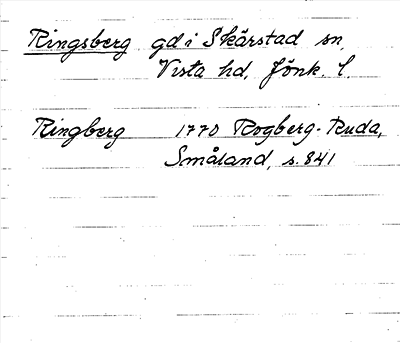 Ringsberg gd i Skärstad sn,
Vista hd, Jönk. l.
Ringberg 1770 Rogberg-Ruda,
Småland, s. 841